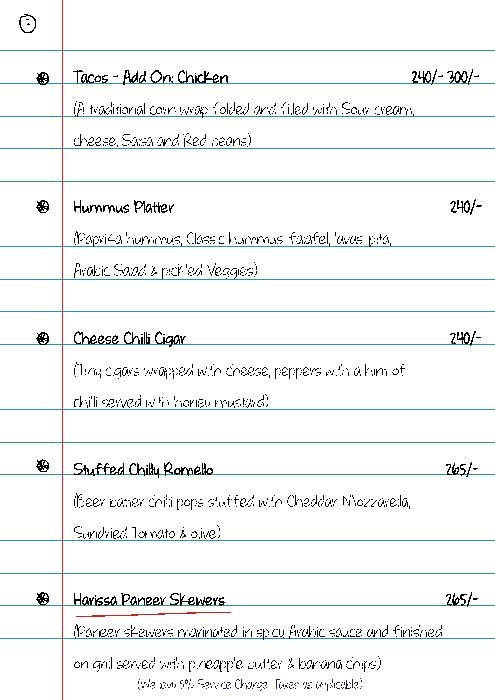 Tacos - Add On: Chicken 240/- 300/-
(A traditional corn wrap folded and filled with Sour cream,
cheese, Salsa and Red beans)
Hummus Platter 240/-
(Paprika hummus, Classic hummus falafel, lavas pita,
Arabic Salad & pickled Veggies)
Cheese Chilli Cigar 240/-
(Tiny cigars wrapped with cheese, peppers with a hint of
chilli served with honey mustard)
Stuffed Chilly Romello 265/-
(Beer batter chilli pops stuffed with Cheddar Mozzarella,
Sundried Tomato & olive)
Harissa Paneer Skewers 265/-
(Paneer skewers marinated in spicy Arabic sauce and finished
on grill served with pineapple butter & banana chips)
(We levy 5% Service Charge. Taxes as applicable)